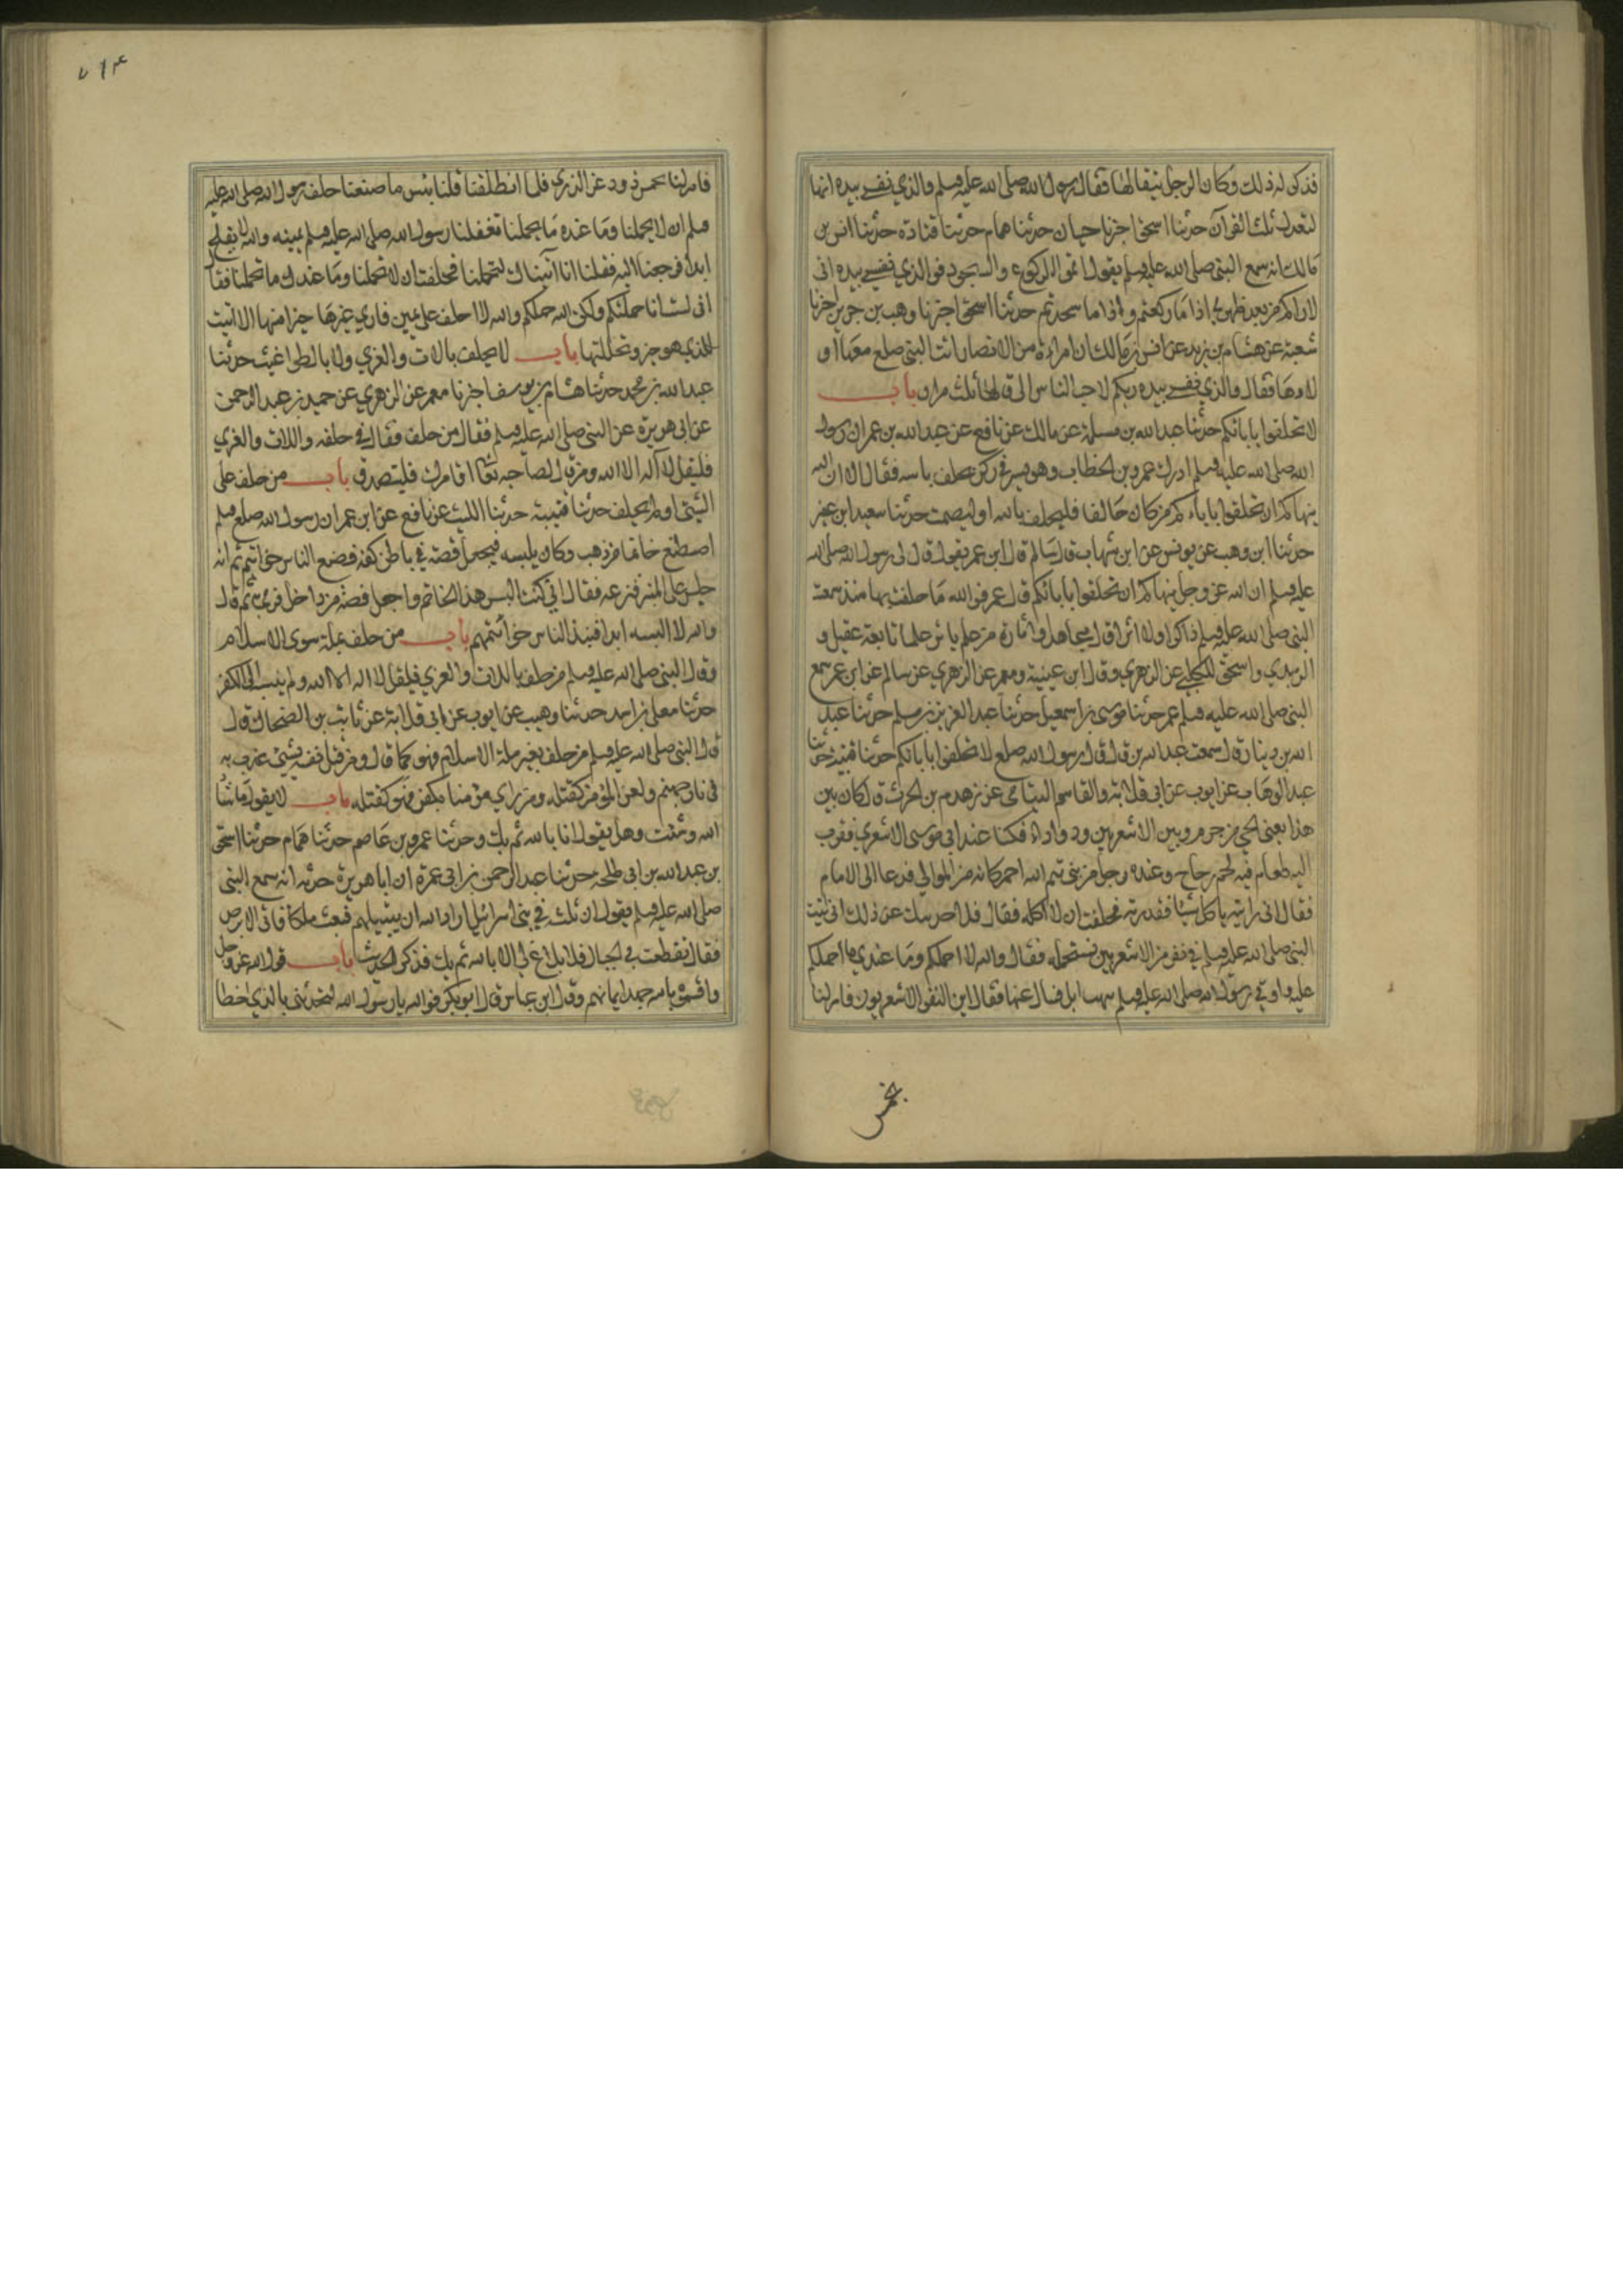 فذكر له ذلك وكان الرجل يتقالها فقال رسول الله صلى الله عليه وسلم والذي نفسي بيده انها
لتعدل ثلث القرآن حدثنا اسحق اخبرنا حبان حدثنا همام حدثنا قتادة حدثنا انس بن
مالك انه سمع النبي صلى الله عليه وسلم يقول اتموا الركوع والسجود فوالذي نفسي بيده اني
لاراكم من بعد ظهري اذا ما ركعتم واذا ما سجدتم حدثنا اسحق اخبرنا وهب بن جرير اخبرنا
شعبة عن هشام بن زيد عن انس بن مالك ان امراءة من الانصار اتت النبي صلعم معها او
لادها فقال والذي نفسي بيده انكم لاحب الناس الي قالها ثلث مرار باب
لا تحلفوا بابائكم حدثنا عبد الله بن مسلمة عن مالك عن نافع عن عبد الله بن عمر ان رسول
الله صلى الله عليه وسلم ادرك عمر بن الخطاب وهو يسير في ركب يحلف بابيه فقال الا ان الله
ينهاكم ان تحلفوا باباءكم من كان حالفا فليحلف بالله او ليصمت حدثنا سعيد ابن عفير
حدثنا ابن وهب عن يونس عن ابن شهاب قال سالم قال ابن عمر يقول قال لي رسول الله صلى الله
عليه وسلم ان الله عز وجل ينهاكم ان تحلفوا بابائكم قال عمر فوالله ما حلفت بها منذ سمعت
النبي صلى الله عليه وسلم ذاكرا ولا اثرا قال مجاهد او اثارة من علم ياثر علما تابعه عقيل و
الزبيدي واسحق الكلبي عن الزهري وقال ابن عيينة ومعمر عن الزهري عن سالم عن ابن عمر سمع
النبي صلى الله عليه وسلم عمر حدثنا موسى بن اسمعيل حدثنا عبد العزيز بن مسلم حدثنا عبد
الله بن دينار قال سمعت عبد الله بن قال قال رسول الله صلعم لا تحلفوا بابائكم حدثنا قتيبة حدثنا
عبد الوهاب عن ايوب عن ابي قلابة والقاسم التيامي عن زهدم بن الحرث قال كان بين
هذا يعني الحي من جرم وبين الاشعريين ود واداء فكنا عند ابي موسى الاشعري فقرب
اليه طعام فيه لحم دجاج وعنده رجل من بني تيم الله احمر كانه من الموالي فدعا الى الامام
فقال اني رايته ياكل شيئا فقذرته فحلفت ان لا اكله فقال فلاحدثنك عن ذلك اني اتيت
النبي صلى الله عليه وسلم في نفر من الاشعريين نستحمله فقال والله لا احملكم وما عندي ما احملكم
عليه واتي رسول الله صلى الله عليه وسلم بنهب ابل فسال عنها فقال اين النفر الاشعريون فامر لنا
بخمس
٧١٤
فامر لنا بخمس ذود غر الذرى فلما انطلقنا قلنا بئس ما صنعنا حلف رسول الله صلى الله عليه
وسلم ان لا يحملنا وما عنده ما يحملنا تغفلنا رسول الله صلى الله عليه وسلم يمينه والله لا نفلح
ابدا فرجعنا اليه فقلنا انا اتيناك لتحملنا فحلفت ان لا تحملنا وما عندك ما تحملنا فقال
اني لست انا حملتكم ولكن الله حملكم والله لا احلف على يمين فاري غيرها خيرا منها الا اتيت
الذي هو خير وتحللتها باب لا يحلف بالات والعزي ولا بالطواغيت حدثنا
عبد الله بن محمد حدثنا هشام بن يوسف اخبرنا معمر عن الزهري عن حميد بن عبد الرحمن
عن ابي هريرة عن النبي صلى الله عليه وسلم فقال من حلف فقال في حلفه واللات والعزي
فليقل لا اله الا الله ومن قال لصاحبه تعال اقامرك فليتصدق باب من حلف على
الشيئ او لم يحلف حدثنا قتيبة حدثنا الليث عن نافع عن ابن عمر ان رسول الله صلعم وسلم
اصطنع خاتما من ذهب وكان يلبسه فيجعل فصه في باطن كفه فصنع الناس خواتيم ثم انه
جلس على المنبر فنزعه فقال اني كنت البس هذا الخاتم واجعل فصه من داخل فرمى به ثم قال
والله لا البسه ابدا فنبذ الناس خواتيمهم باب من حلف بملة سوى الاسلام
وقال النبي صلى الله عليه وسلم من حلف باللات والعزي فليقل لا اله الا الله ولم ينسب الى الكفر
حدثنا معلى بن اسد حدثنا وهيب عن ايوب عن ابي قلابة عن ثابت بن الضحاك قال
قال النبي صلى الله عليه وسلم من حلف بغير ملة الاسلام فهو كما قال ومن قتل نفسه بشيئ عذب به
في نار جهنم ولعن المؤمن كقتله ومن رمي مؤمنا بكفر فهو كقتله باب لا يقول ما شاء
الله وشئت وهل يقول انا بالله ثم بك وحدثنا عمرو بن عاصم حدثنا همام حدثنا اسحق
بن عبد الله بن ابي طلحه حدثنا عبد الرحمن بن ابي عمرة ان ابا هريرة حدثه انه سمع النبي
صلى الله عليه وسلم يقول ان ثلثة في بني اسرائيل اراد الله ان يبتليهم فبعث ملكا فاتى الابرص
فقال تقطعت في الحبال فلا بلاغ لي الا بالله ثم بك فذكر الحديث باب قول الله عز وجل
واقسموا بالله جهد ايمانهم وقال ابن عباس قال ابو بكر فوالله يا رسول الله لتحدثني بالذي اخطا